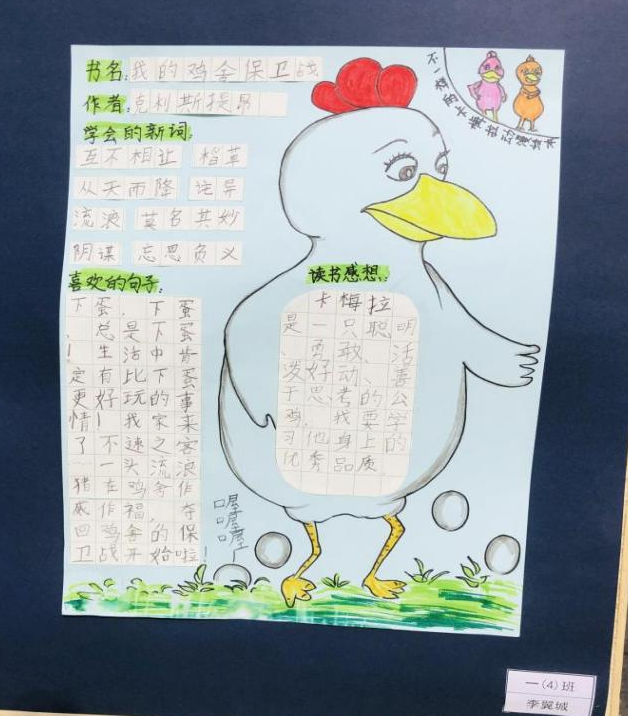 书名:我的鸡舍保卫战
作者:克利斯提昂
学会的新词:
互不相让 档革
从天而降 诧异
流浪 莫名其妙
阴谋 忘恩负义
喜欢的句子:
下蛋,下蛋
,总是下蛋
!生活中肯
定有比下蛋
更好玩的事
情!我家来
了不速之客
一头流浪
猪在鸡舍作
威作福,夺
回鸡舍的保
卫战开始啦!
读书感想:
卡梅拉
是一只聪明
、勇敢、活
泼好动、善
于思考的公
鸡,我要学
习他身上的
优秀品质
喔喔喔
不一样的卡梅拉动漫绘本
一(4)班
李翼城